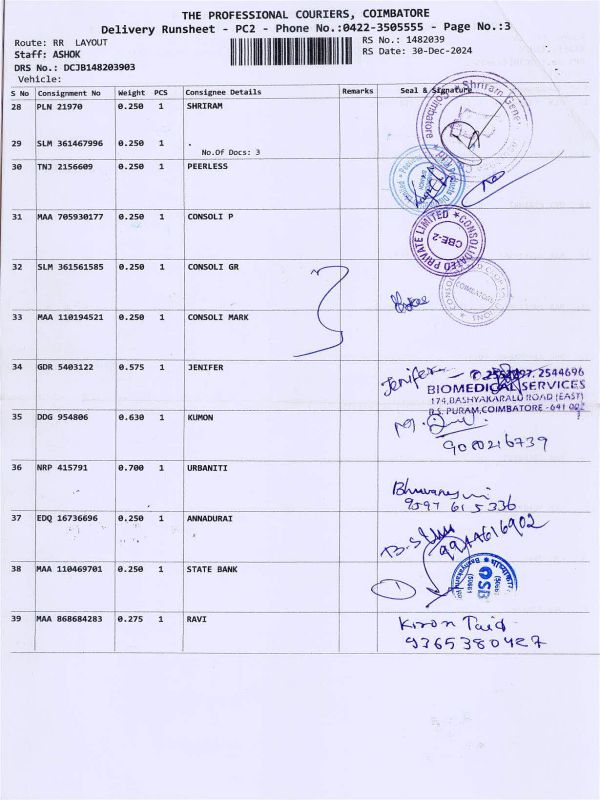 THE PROFESSIONAL COURIERS, COIMBATORE
Delivery Runsheet - PC2 - Phone No.:0422-3505555 - Page No.:3
Route: RR LAYOUT
RS No.: 1482039
Staff: ASHOK
RS Date: 30-Dec-2024
DRS No.: DCJB148203903
Vehicle:
S No Consignment No Weight PCS Consignee Details Remarks Seal & Signature
28 PLN 21970 0.250 1 SHRIRAM
Shriram Gener
Coimbatore
29 SLM 361467996 0.250 1 .
No.Of Docs: 3
30 TNJ 2156609 0.250 1 PEERLESS
31 MAA 705930177 0.250 1 CONSOLI P
CONSOLIDATED PRIVATE LIMITED
CBE-2
32 SLM 361561585 0.250 1 CONSOLI GR
COIMBATORE
33 MAA 110194521 0.250 1 CONSOLI MARK
34 GDR 5403122 0.575 1 JENIFER
Jenifer
2544696
BIOMEDICAL SERVICES
174,BASHYAKARALU ROAD (EAST)
R.S. PURAM,COIMBATORE - 641 002
35 DDG 954806 0.630 1 KUMON
9080216739
36 NRP 415791 0.700 1 URBANITI
Bhuvaneswari
9597 615336
37 EDQ 16736696 0.250 1 ANNADURAI
9944616902
38 MAA 110469701 0.250 1 STATE BANK
1
39 MAA 868684283 0.275 1 RAVI
Kiron Taid
9365380427